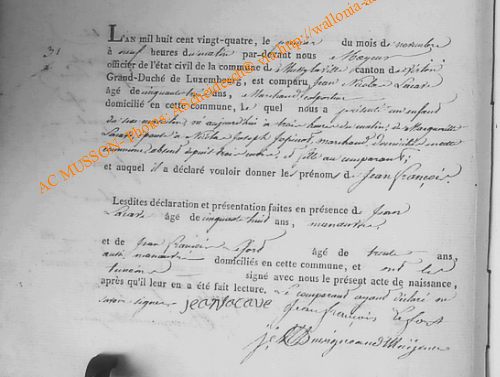 31
L'AN mil huit cent vingt-quatre, le premier du mois de novembre
à neuf heures du matin par-devant nous Mayeur
officier de l'état civil de la commune de canton de
Grand-Duché de Luxembourg, est comparu Jean Nicolas Lacave
âgé de cinquante ans, Marchand colporteur
domicilié en cette commune, le quel nous a présenté un enfant
du sexe masculin, né aujourd'hui à trois heures du matin, de Marguerite
Lacave épouse à Nicolas Joseph marchand domicilié en cette
commune, absent depuis trois mois, et fille au comparant;
et auquel il a déclaré vouloir donner les prénoms de Jean François
Lesdites déclaration et présentation faites en présence de Jean
Lacave âgé de cinquante huit ans, manœuvre
et de Jean François Lefort âgé de trente ans,
aussi manœuvre domiciliés en cette commune, et ont les
témoins signé avec nous le présent acte de naissance,
après qu'il leur en a été fait lecture. Le comparant ayant déclaré ne
savoir signer
jean lacave
jean françois Lefort
AC MUSSON- Photos: